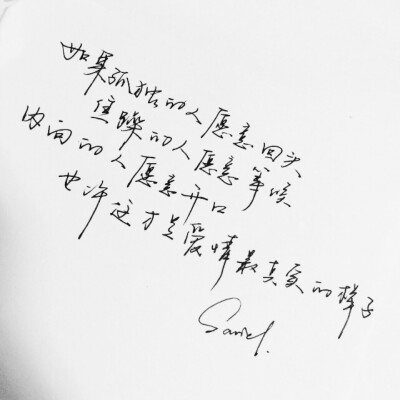 如果孤独的人愿意回头
焦躁的人愿意等候
内向的人愿意开口
也许这才是爱情最真实的样子